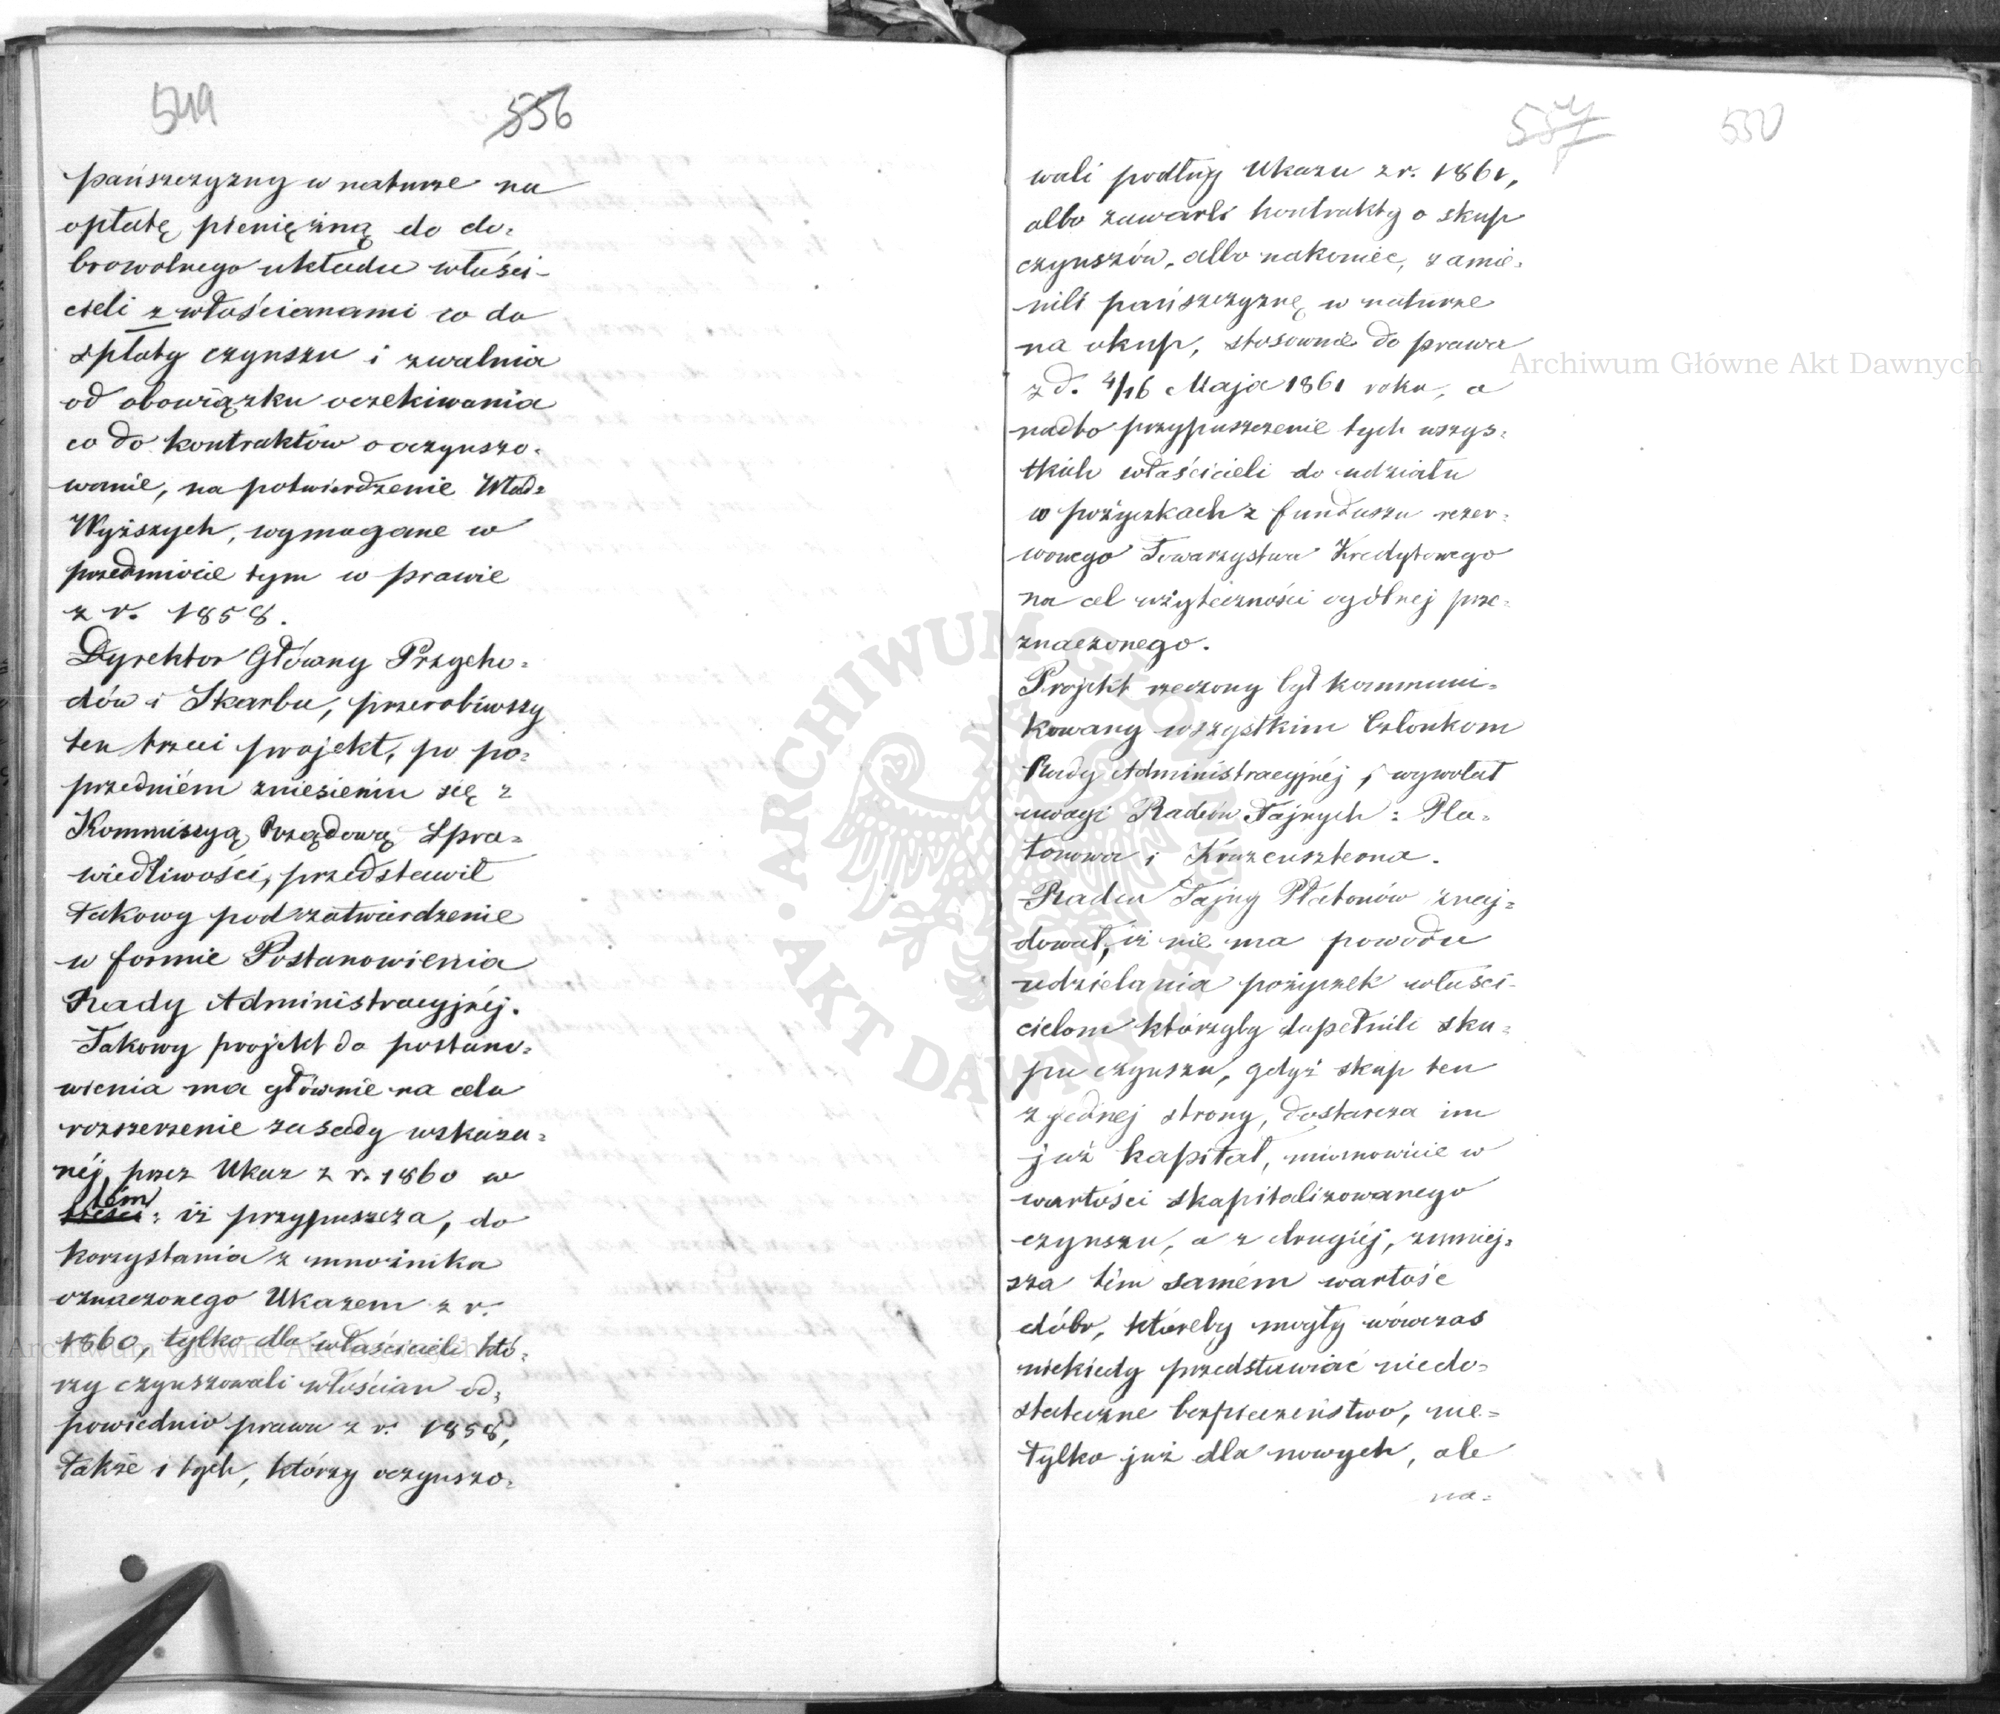 549 556
pańszczyzny w naturze na
opłatę pieniężną do do=
browolnego układu właści-
cieli z włościanami co do
spłaty czynszu i zwalnia
od obowiązku oczekiwania
co do kontraktów o oczynszo=
wanie, na potwierdzenie Wład=
Wyższych, wymagane w
przedmiocie tym w prawie
z r. 1858.
Dyrektor Główny Przycho=
dów i Skarbu, przerobiwszy
ten trzeci projekt, po po=
przedniém zniesieniu się z
Kommissyą Rządową Spra=
wiedliwości, przedstawił
takowy pod zatwierdzenie
w formie Postanowienia
Rady Administracyjnéj.
Takowy projekt do postano=
wienia ma głównie na celu
rozszerzenie zasady wskaza=
néj, przez Ukaz z r. 1860 w
tém
treści: iż przypuszcza, do
korzystania z mnożnika
oznaczonego Ukazem z r.
1860, tylko dla właścicieli któ=
rzy czynszowali włościan od=
powiednio prawu z r. 1858,
także i tych, którzy oczynszo=
557 550
wali podług Ukazu z r. 1861,
albo zawarli kontrakty o skup
czynszów, albo nakoniec, zamie=
nili pańszczyznę w naturze
na okup, stosownie do prawa
z d. 4/16 Maja 1861 roku, a
nadto przypuszczenie tych wszys=
tkich właścicieli do udziału
w pożyczkach z funduszu rezer=
wowego Towarzystwa Kredytowego
na cel użyteczności ogólnej prze=
znaczonego.
Projekt rzeczony był kommuni=
kowany wszystkim Członkom
Rady Administracyjnéj i wywołał
uwagi Radców Tajnych: Pła=
tonowa i Kruzenszterna.
Radca Tajny Płatonów znaj=
dował, iż nie ma powodu
udzielania pożyczek właści-
cielom którzyby dopełnili sku=
pu czynszu, gdyż skup ten
z jednej strony, dostarcza im
już kapitał, mianowicie w
wartości skapitalizowanego
czynszu, a z drugiéj, zmniej=
sza tém samém wartość
dóbr, któreby mogły wówczas
niekiedy przedstawiać niedo=
stateczne bezpieczeństwo, nie=
tylko już dla nowych, ale
na=
Archiwum Główne Akt Dawnych
Archiwum Główne Akt Dawnych
ARCHIWUM GŁÓWNE • AKT DAWNYCH